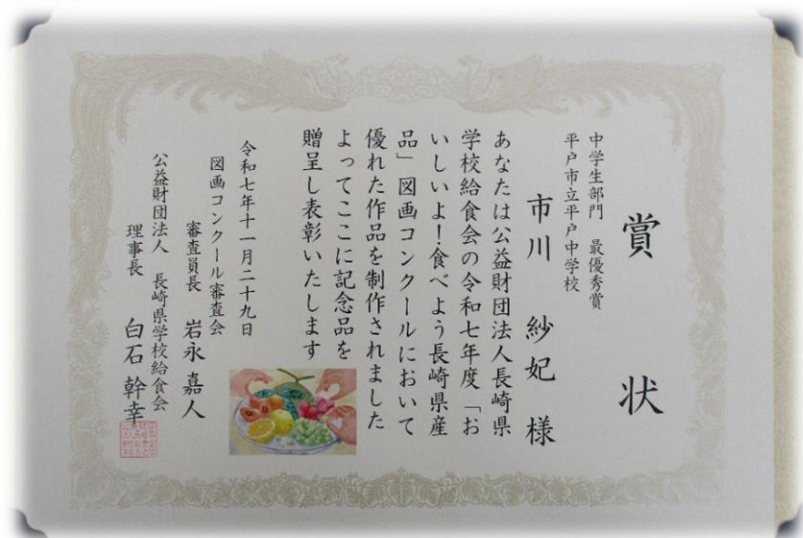 賞状
中学生部門 最優秀賞
平戸市立平戸中学校
市川 紗妃 様
あなたは公益財団法人長崎県
学校給食会の令和七年度「お
いしいよ！食べよう長崎県産
品」図画コンクールにおいて
優れた作品を制作されました
よってここに記念品を
贈呈し表彰いたします
令和七年十一月二十九日
図画コンクール審査会
審査員長 岩永 嘉人
公益財団法人 長崎県学校給食会
理事長 白石 幹幸